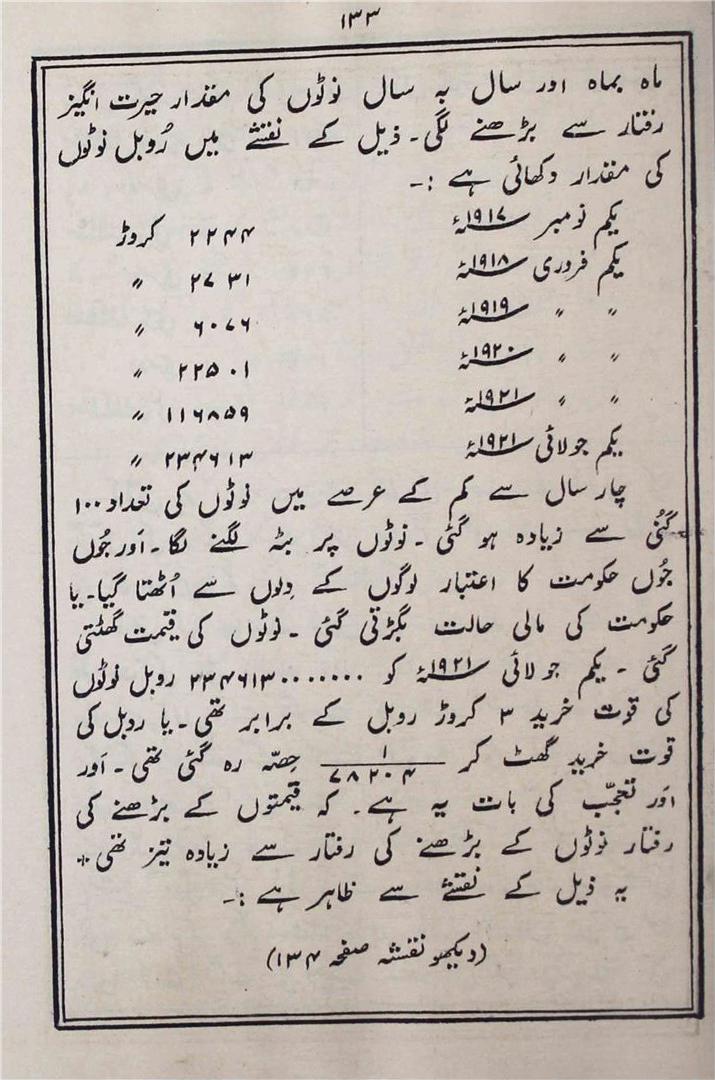 ۱۳۳
ماہ بماہ اور سال بہ سال نوٹوں کی مقدار حیرت انگیز
رفتار سے بڑھنے لگی۔ ذیل کے نقشے میں رُوبل نوٹوں
کی مقدار دکھائی ہے :۔
یکم نومبر ۱۹۱۷ء ۲۲۴۴ کروڑ
یکم فروری ۱۹۱۸ء ۲۷۳۱ "
" " ۱۹۱۹ء ۶۰۷۶ "
" " ۱۹۲۰ء ۲۲۵۰۱ "
" " ۱۹۲۱ء ۱۱۶۸۵۹ "
یکم جولائی ۱۹۲۱ء ۲۳۴۶۱۳ "
چار سال سے کم کے عرصے میں نوٹوں کی تعداد ۱۰۰
گُنی سے زیادہ ہو گئی۔ نوٹوں پر بٹہ لگنے لگا۔ اَور جُوں
جُوں حکومت کا اعتبار لوگوں کے دِلوں سے اُٹھتا گیا۔ یا
حکومت کی مالی حالت بگڑتی گئی ۔ نوٹوں کی قیمت گھٹتی
گئی ۔ یکم جولائی ۱۹۲۱ء کو ۲۳۴۶۱۳۰۰۰۰۰۰۰ روبل نوٹوں
کی قوت خرید ۳ کروڑ روبل کے برابر تھی۔ یا روبل کی
قوت خرید گھٹ کر ۱/۷۸۲۰۴ حِصّہ رہ گئی تھی۔ اَور
اَور تعجّب کی بات یہ ہے۔ کہ قیمتوں کے بڑھنے کی
رفتار نوٹوں کے بڑھنے کی رفتار سے زیادہ تیز تھی٭
یہ ذیل کے نقشے سے ظاہر ہے :۔
(دیکھو نقشہ صفحہ ۱۳۴)